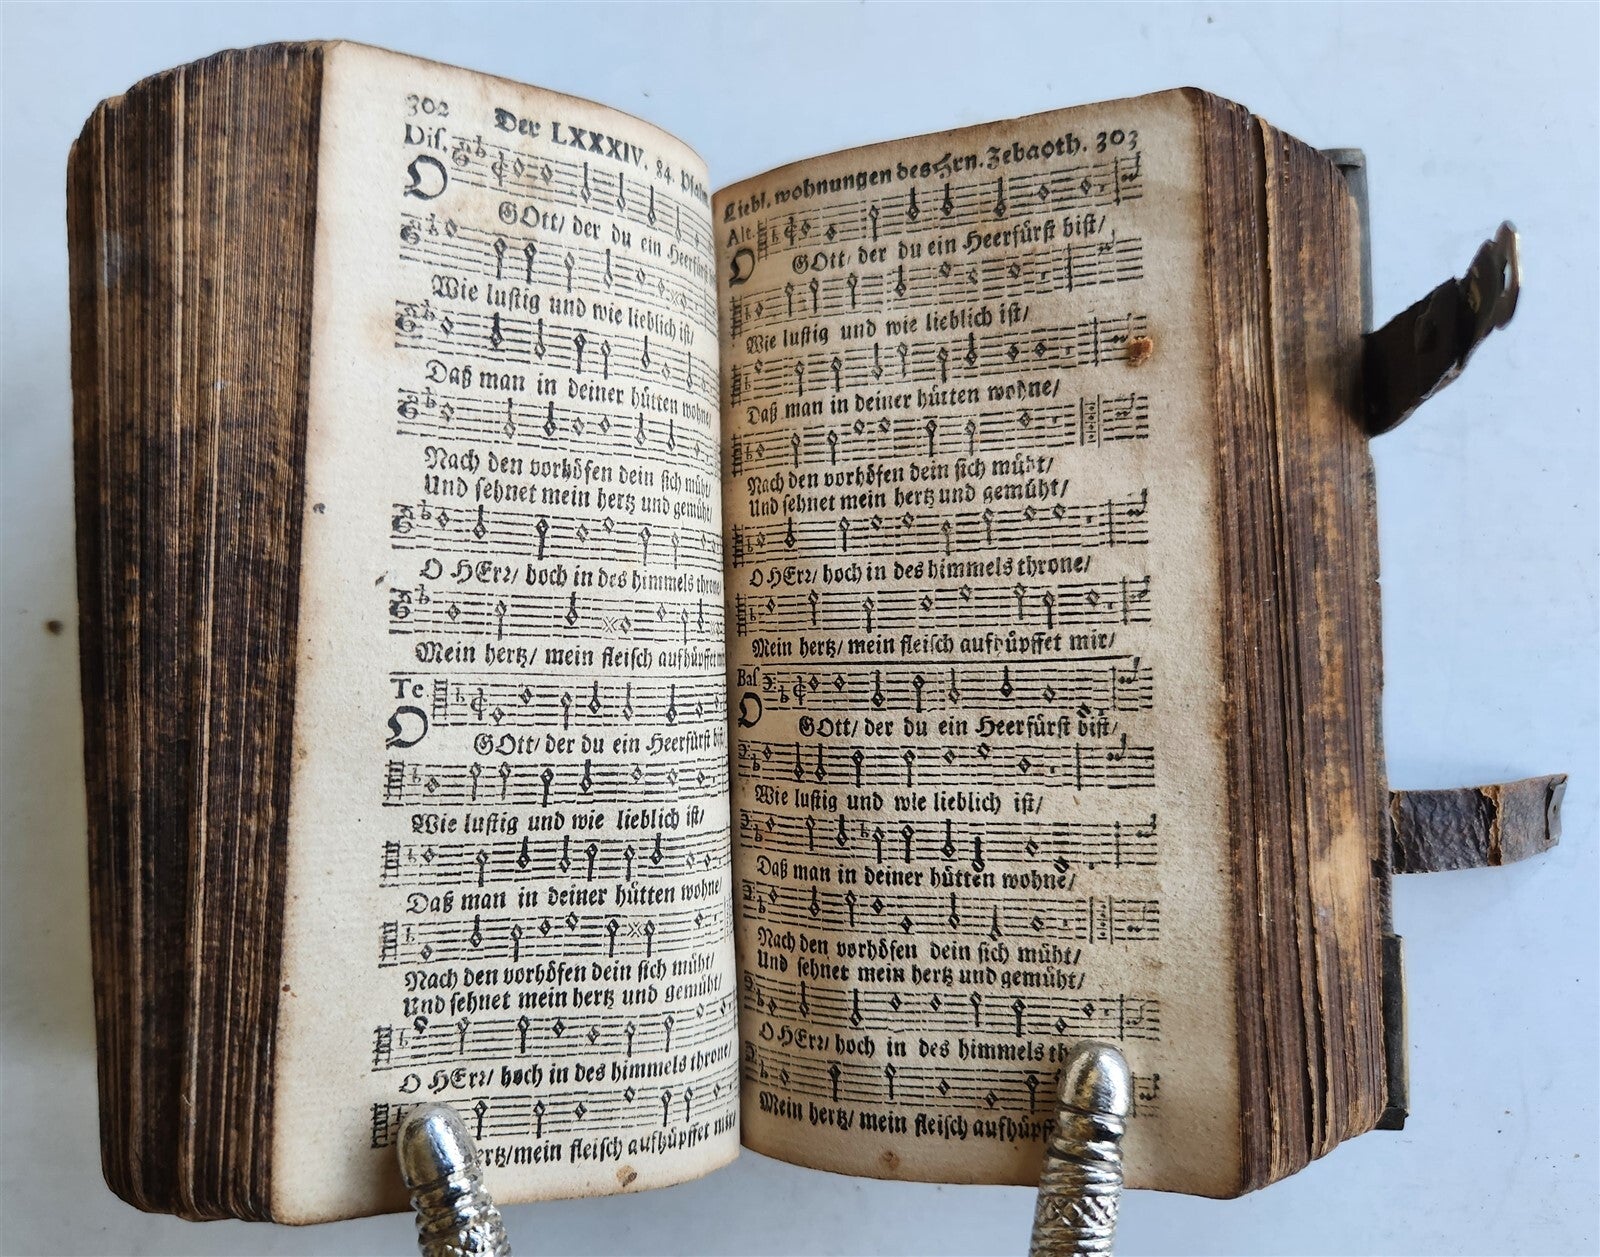 302 Der LXXXIV. 84. Psalm
Dis.
O GOtt/ der du ein Heerfürst
Wie lustig und wie lieblich ist/
Daß man in deiner hütten wohne/
Nach den vorhöfen dein sich müht/
Und sehnet mein hertz und gemüht/
O HErr/ hoch in des himmels throne/
Mein hertz/ mein fleisch aufhüpffet mir
Te
O GOtt/ der du ein Heerfürst bist
Wie lustig und wie lieblich ist/
Daß man in deiner hütten wohne/
Nach den vorhöfen dein sich müht/
Und sehnet mein hertz und gemüht/
O HErr/ hoch in des himmels throne/
hertz/mein fleisch aufhüpffet mir/
Liebl. wohnungen des Hrn. Zebaoth. 303
Alt.
O GOtt/ der du ein Heerfürst bist/
Wie lustig und wie lieblich ist/
Daß man in deiner hütten wohne/
Nach den vorhöfen dein sich müht/
Und sehnet mein hertz und gemüht/
O HErr/ hoch in des himmels throne/
Mein hertz/ mein fleisch aufhüpffet mir/
Bas
O GOtt/ der du ein Heerfürst bist/
Wie lustig und wie lieblich ist/
Daß man in deiner hütten wohne/
Nach den vorhöfen dein sich müht/
Und sehnet mein hertz und gemüht/
O HErr/ hoch in des himmels th
Mein hertz/ mein fleisch aufhüpff